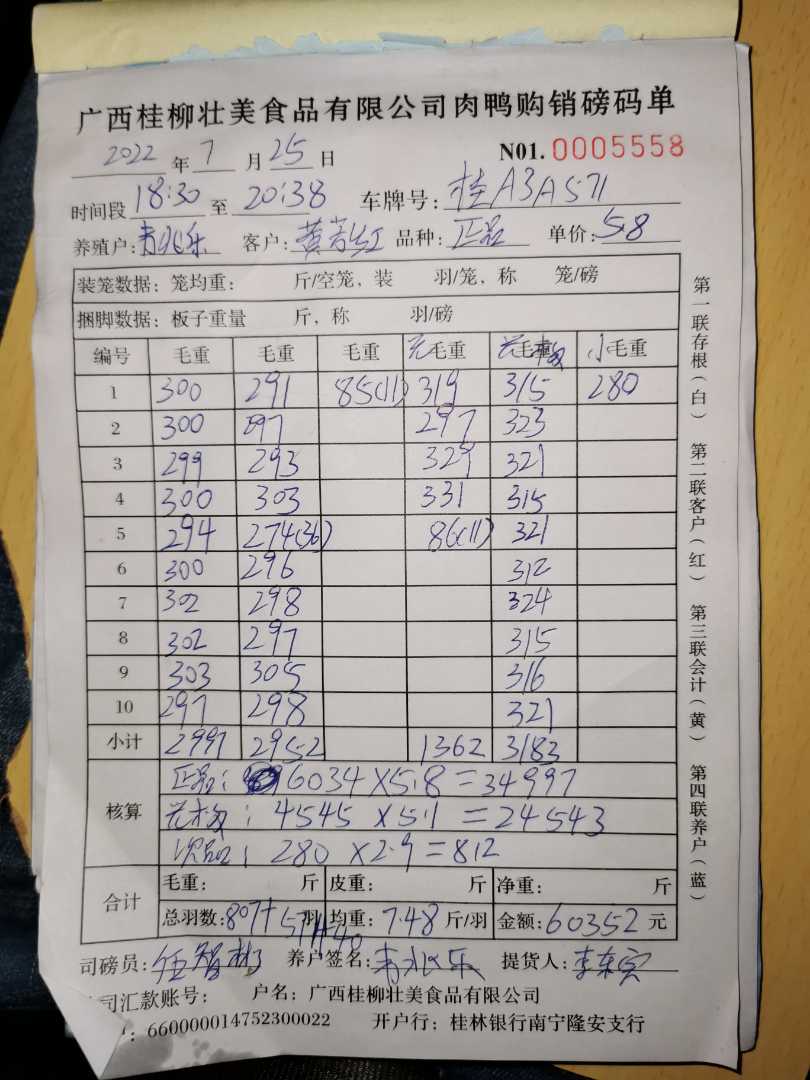 广西桂柳壮美食品有限公司肉鸭购销磅码单
2022 年 7 月 25 日 N01. 0005558
时间段 18:30 至 20:38 车牌号: 桂A3A571
养殖户: 客户: 黄 红 品种: 正品 单价: 5.8
装笼数据: 笼均重: 斤/空笼, 装 羽/笼, 称 笼/磅
捆脚数据: 板子重量 斤, 称 羽/磅
编号 毛重 毛重 毛重 毛重 毛重 小毛重
1 300 291 85(11) 319 315 280
2 300 297 297 323
3 299 293 329 321
4 300 303 331 315
5 294 274(36) 86(11) 321
6 300 296 312
7 302 298 324
8 302 297 315
9 303 305 316
10 297 298 321
小计 2997 2952 1362 3183
核算
正品: 6034 X5.8 = 34997
: 4545 X5.1 = 24543
次品: 280 X2.9 = 812
合计
毛重: 斤 皮重: 斤 净重: 斤
总羽数: 807+571+40 羽 均重: 7.48 斤/羽 金额: 60352 元
司磅员: 养户签名: 提货人:
司汇款账号: 户名: 广西桂柳壮美食品有限公司
: 660000014752300022 开户行: 桂林银行南宁隆安支行
第一联存根(白) 第二联客户(红) 第三联会计(黄) 第四联养户(蓝)